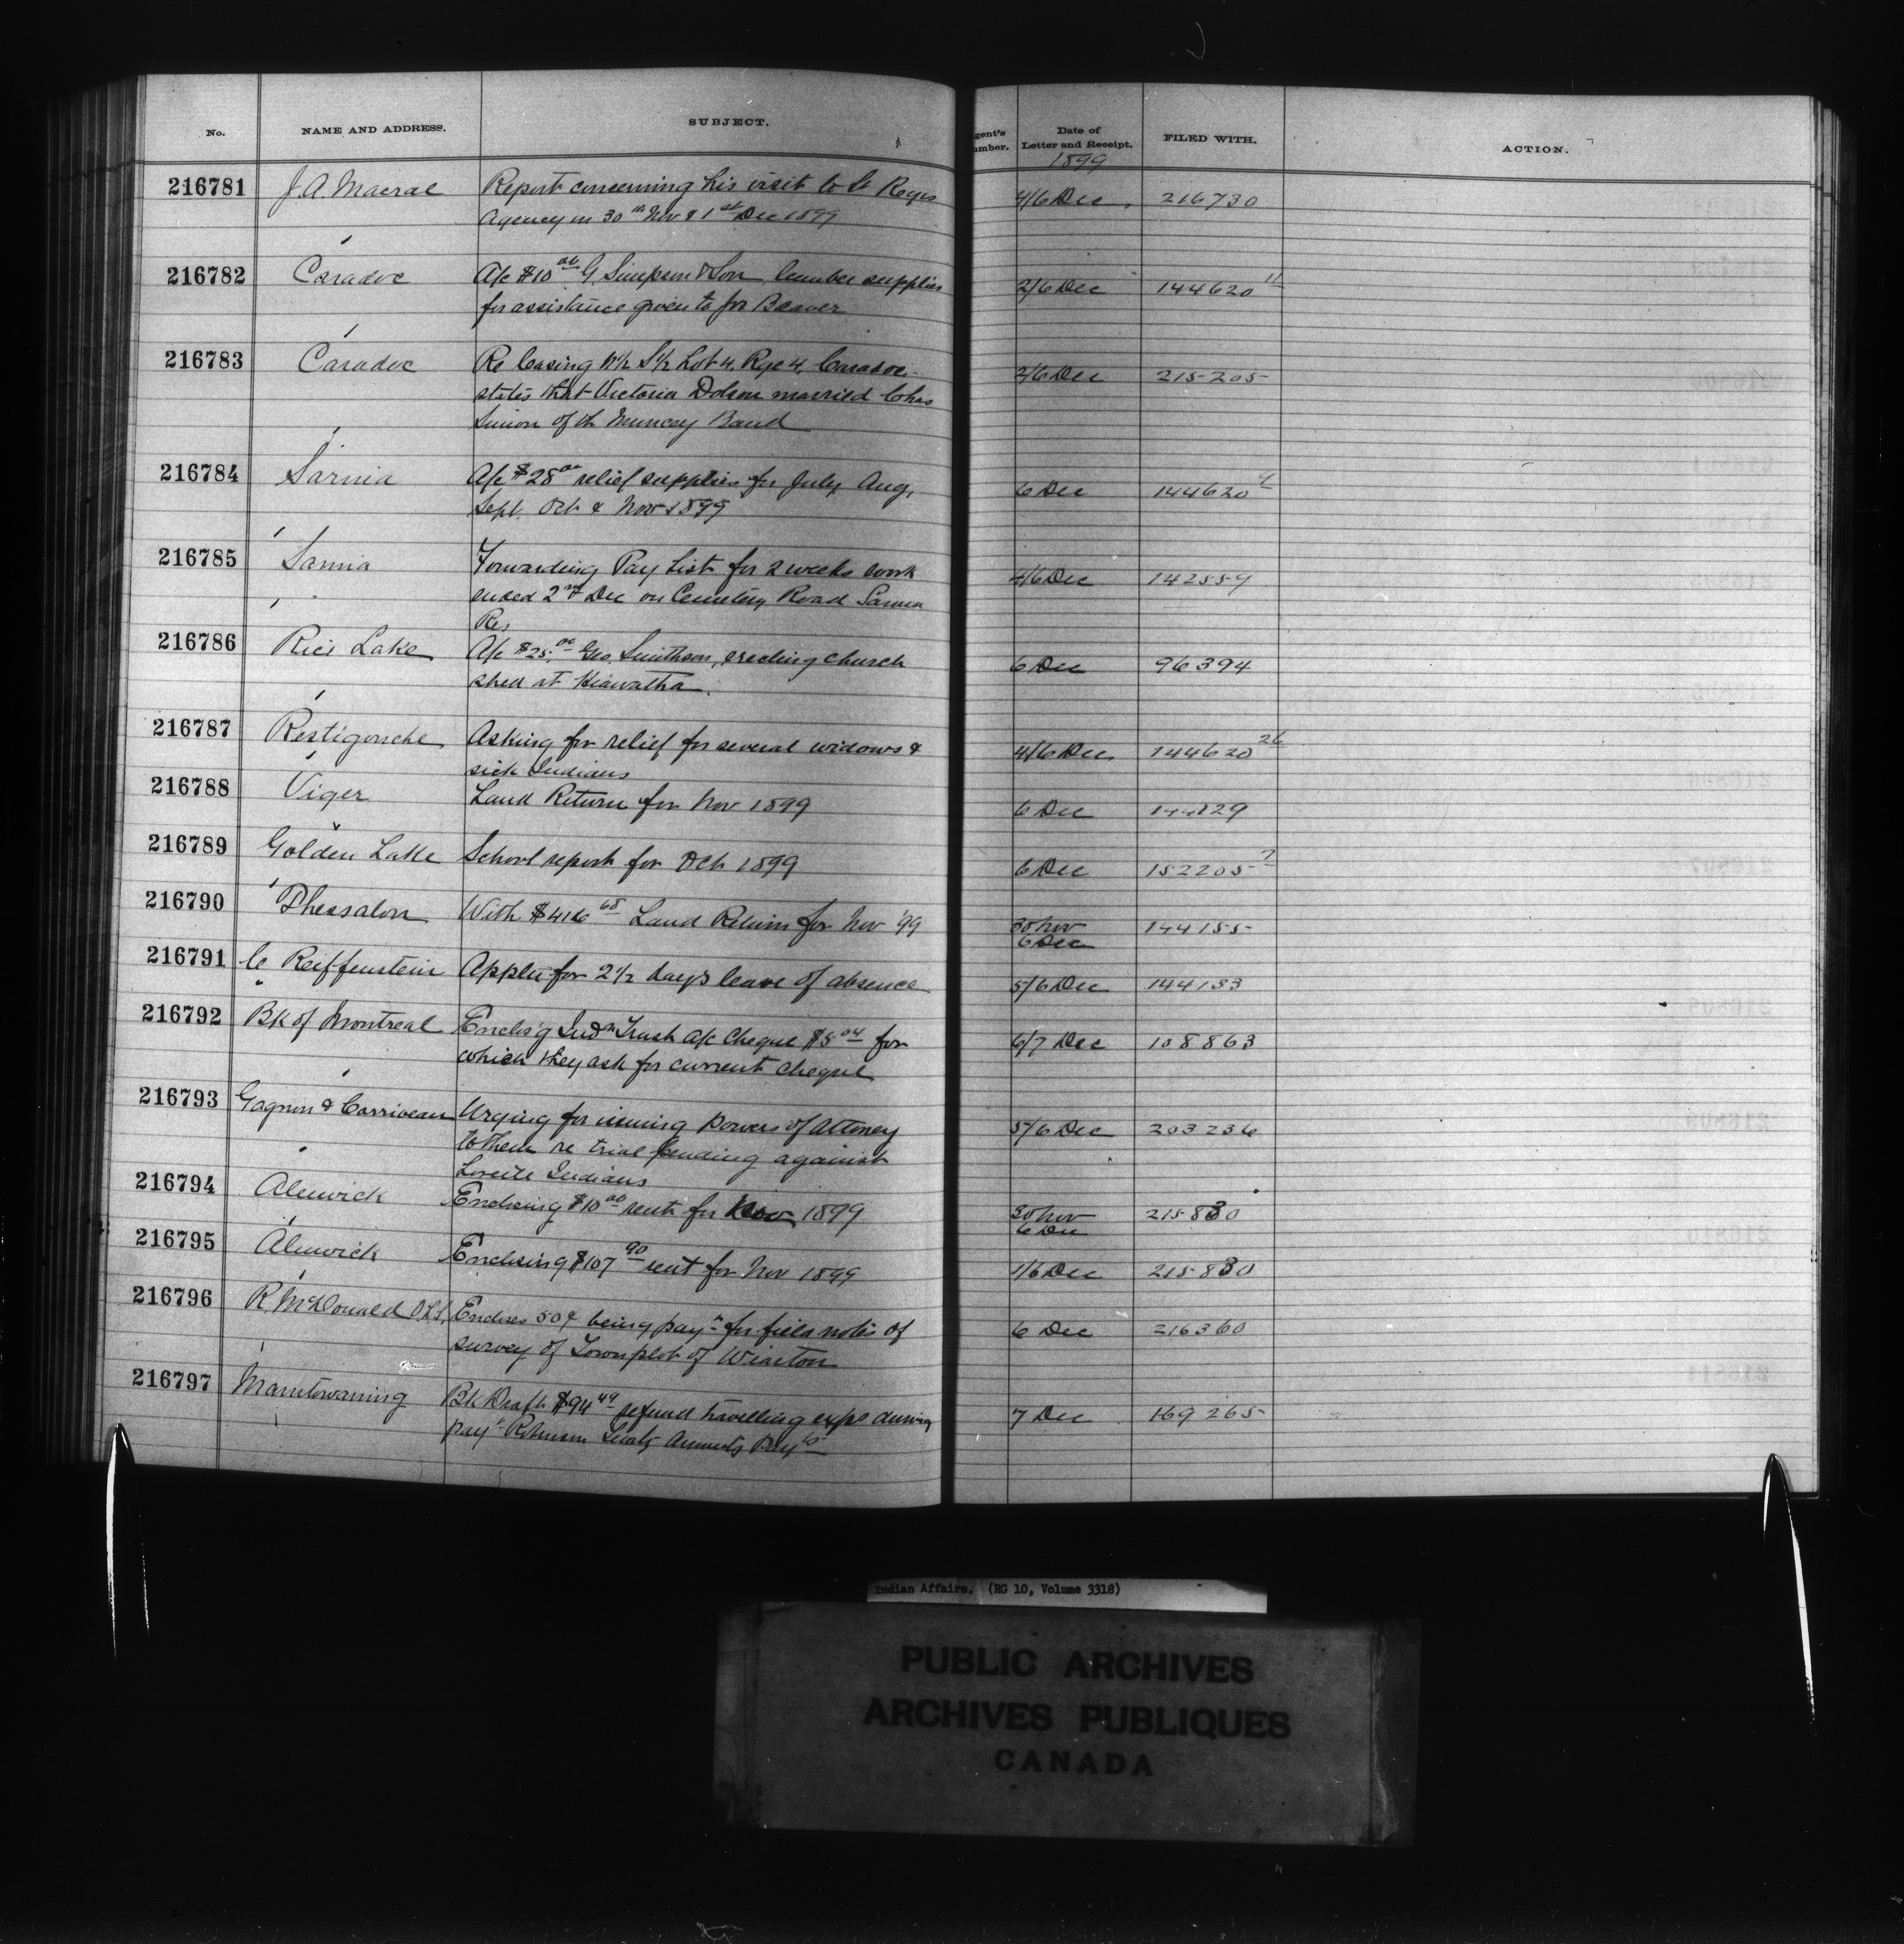 No. NAME AND ADDRESS. SUBJECT. Agent's Number. Date of Letter and Receipt. FILED WITH. ACTION.
1899
216781 J. A. Macrae Report concerning his visit to St Regis 4/6 Dec. 216730
Agency on 30th Nov & 1st Dec 1899
216782 Caradoc A/c $10 00 G. Simpson & Son lumber supplies 2/6 Dec 144620 11
for assistance given to for Beaver
216783 Caradoc Re leasing N½ S½ Lot 4, Rge 4, Caradoc 2/6 Dec 215205
states that Victoria Dolson married Chas
Simon of the Muncey Band
216784 Sarnia A/c $28 00 relief supplies for July Aug, 6 Dec 144620 9
Sept. Oct & Nov 1899
216785 Sarnia Forwarding Pay List for 2 weeks work 4/6 Dec 142559
ended 2nd Dec on Cemetery Road Sarnia
Res
216786 Rice Lake A/c $25. 00 Geo. Smithson, erecting church 6 Dec 96394
shed at Hiawatha.
216787 Restigouche Asking for relief for several widows & 4/6 Dec 144620 26
sick Indians
216788 Viger Land Return for Nov 1899 6 Dec 144129
216789 Golden Lake School report for Oct 1899 6 Dec 152205 7
216790 Thessalon With $416 68 Land Return for Nov '99 30 Nov 144155
6 Dec
216791 C Reiffenstein Applies for 2½ days leave of absence 5/6 Dec 144133
216792 Bk of Montreal Enclos'g Indn Trust A/c cheque $5 04 for 6/7 Dec 108863
which they ask for current cheque
216793 Gagnon & Corriveau Urging for issuing Powers of Attorney 5/6 Dec 203236
to them re trial pending against
Lorette Indians
216794 Alnwick Enclosing $10 00 rent for Nov 1899 30 Nov 215830
6 Dec
216795 Alnwick Enclosing $107 90 rent for Nov 1899 1/6 Dec 215830
216796 R. McDonald O.L.S. Encloses 50¢ being payt for field notes of 6 Dec 216360
survey of Townplot of Wiarton
216797 Manitowaning Bk Draft $94 49 refund travelling exps during 7 Dec 169265
payt Robinson Treaty Annuity Payts
Indian Affairs. (RG 10, Volume 3318)
PUBLIC ARCHIVES
ARCHIVES PUBLIQUES
CANADA